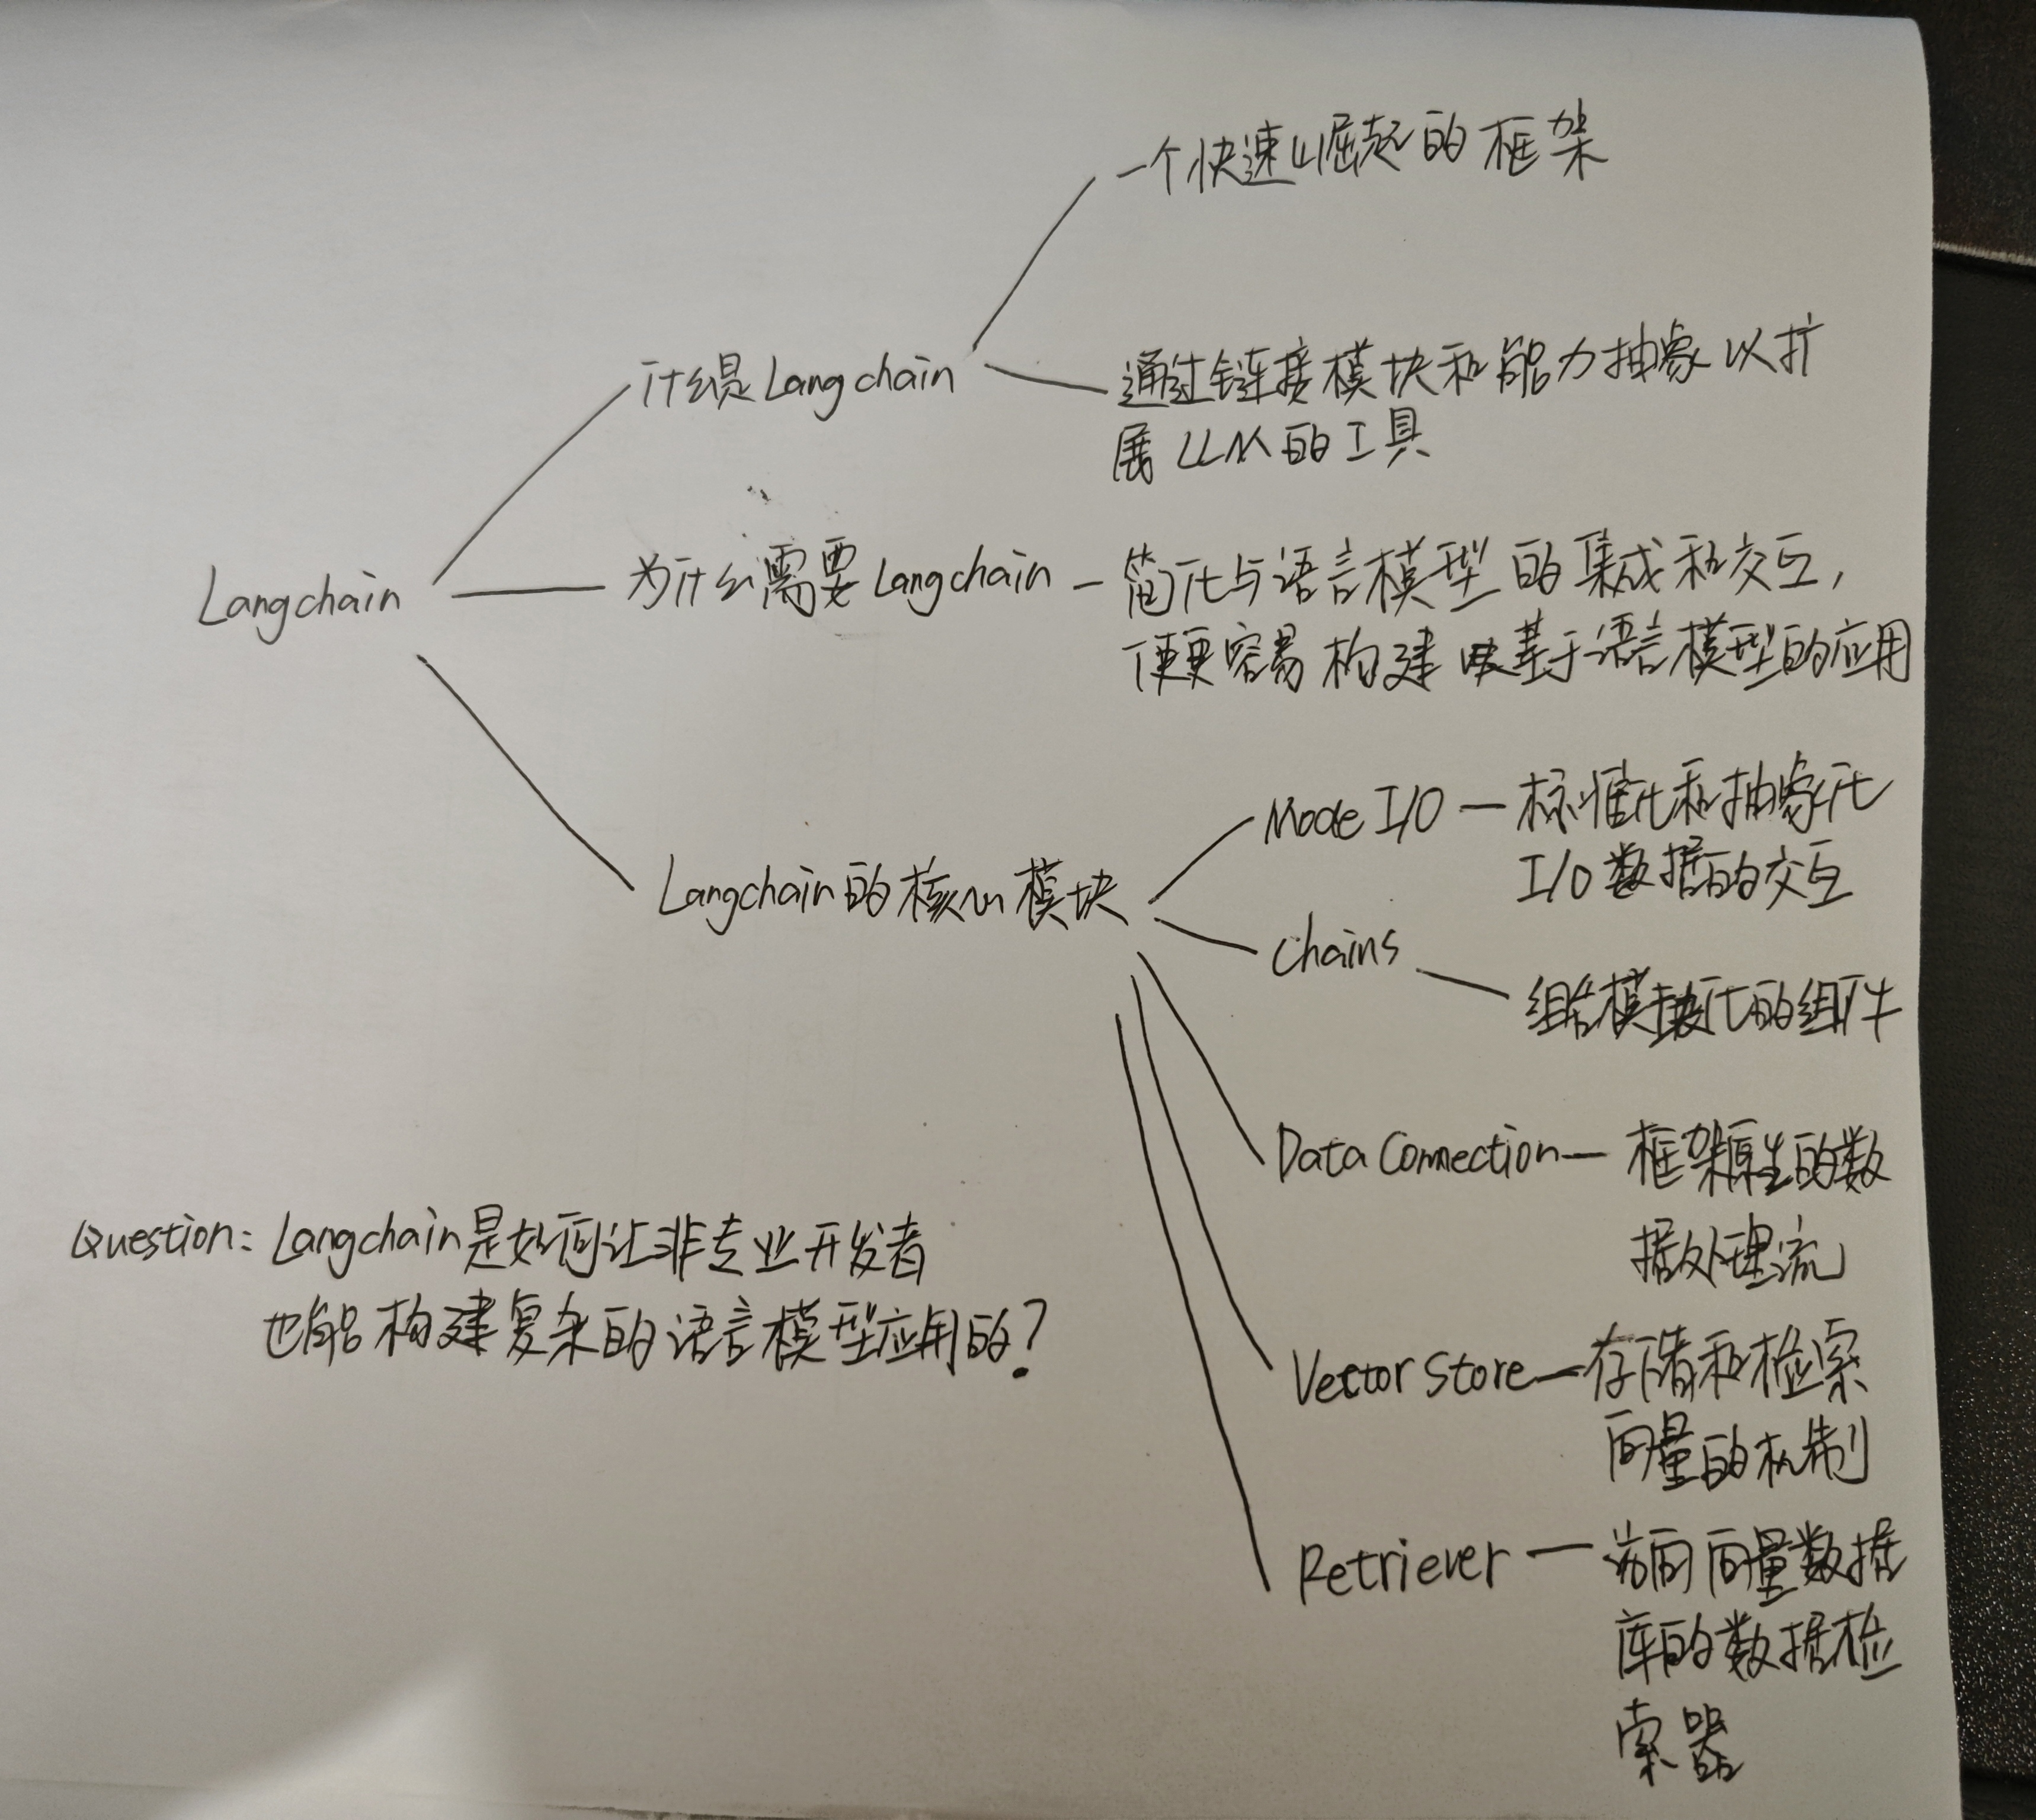 一个快速崛起的框架
什么是Langchain
通过链接模块和能力抽象以扩
展LLM的工具
Langchain
为什么需要Langchain
简化与语言模型的集成和交互,
便更容易构建基于语言模型的应用
Langchain的核心模块
Mode I/O
标准化和抽象化
I/O数据的交互
Chains
组合模块化的组件
Data Connection
框架原生的数
据处理流
Vector Store
存储和检索
向量的机制
Retriever
访问向量数据
库的数据检
索器
Question: Langchain是如何让非专业开发者
也能构建复杂的语言模型应用的?